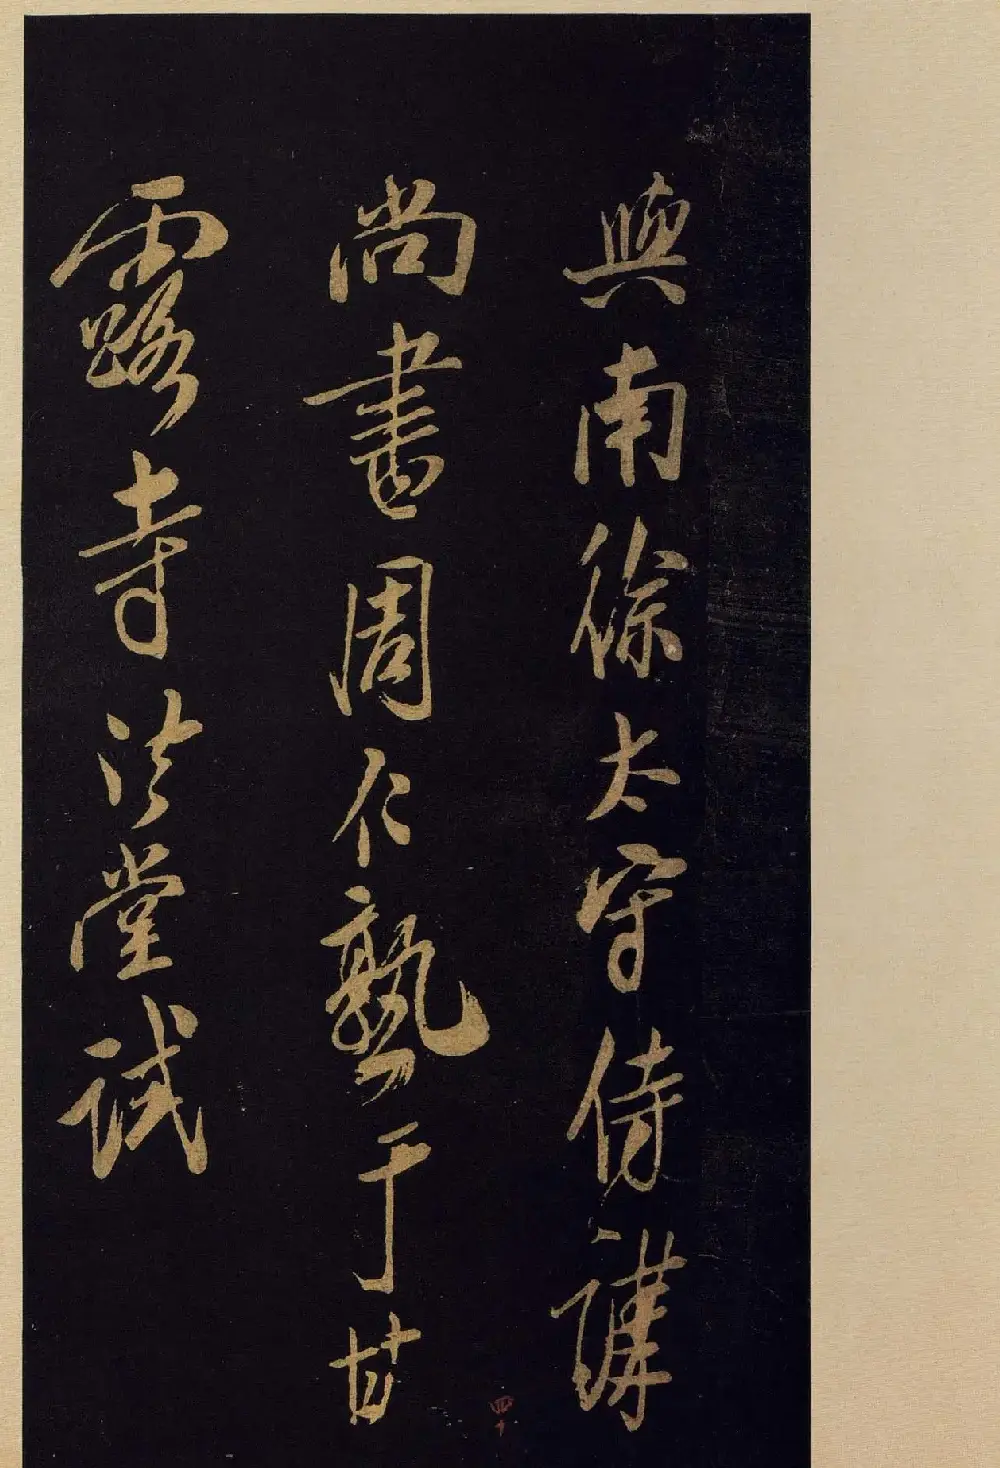 與南徐太守侍講
尚書周仁熟于甘
露寺法堂試
四十